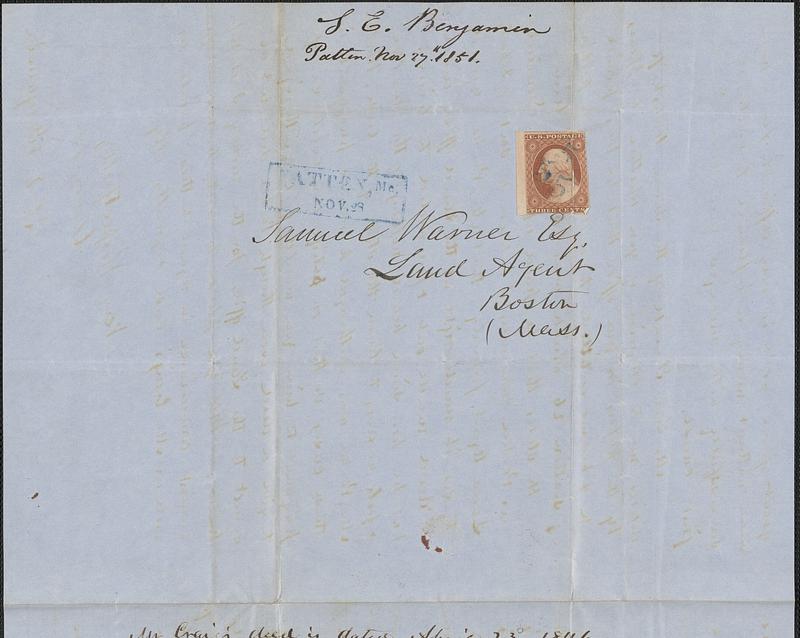 S. E. Benjamin
Patten. Nov 27th. 1851.
U.S. POSTAGE
THREE CENTS
PATTEN, Me.
NOV. 28
Samuel Warner Esq.
Land Agent
Boston
(Mass.)
Mr Craig's deed is dated 23d 1846